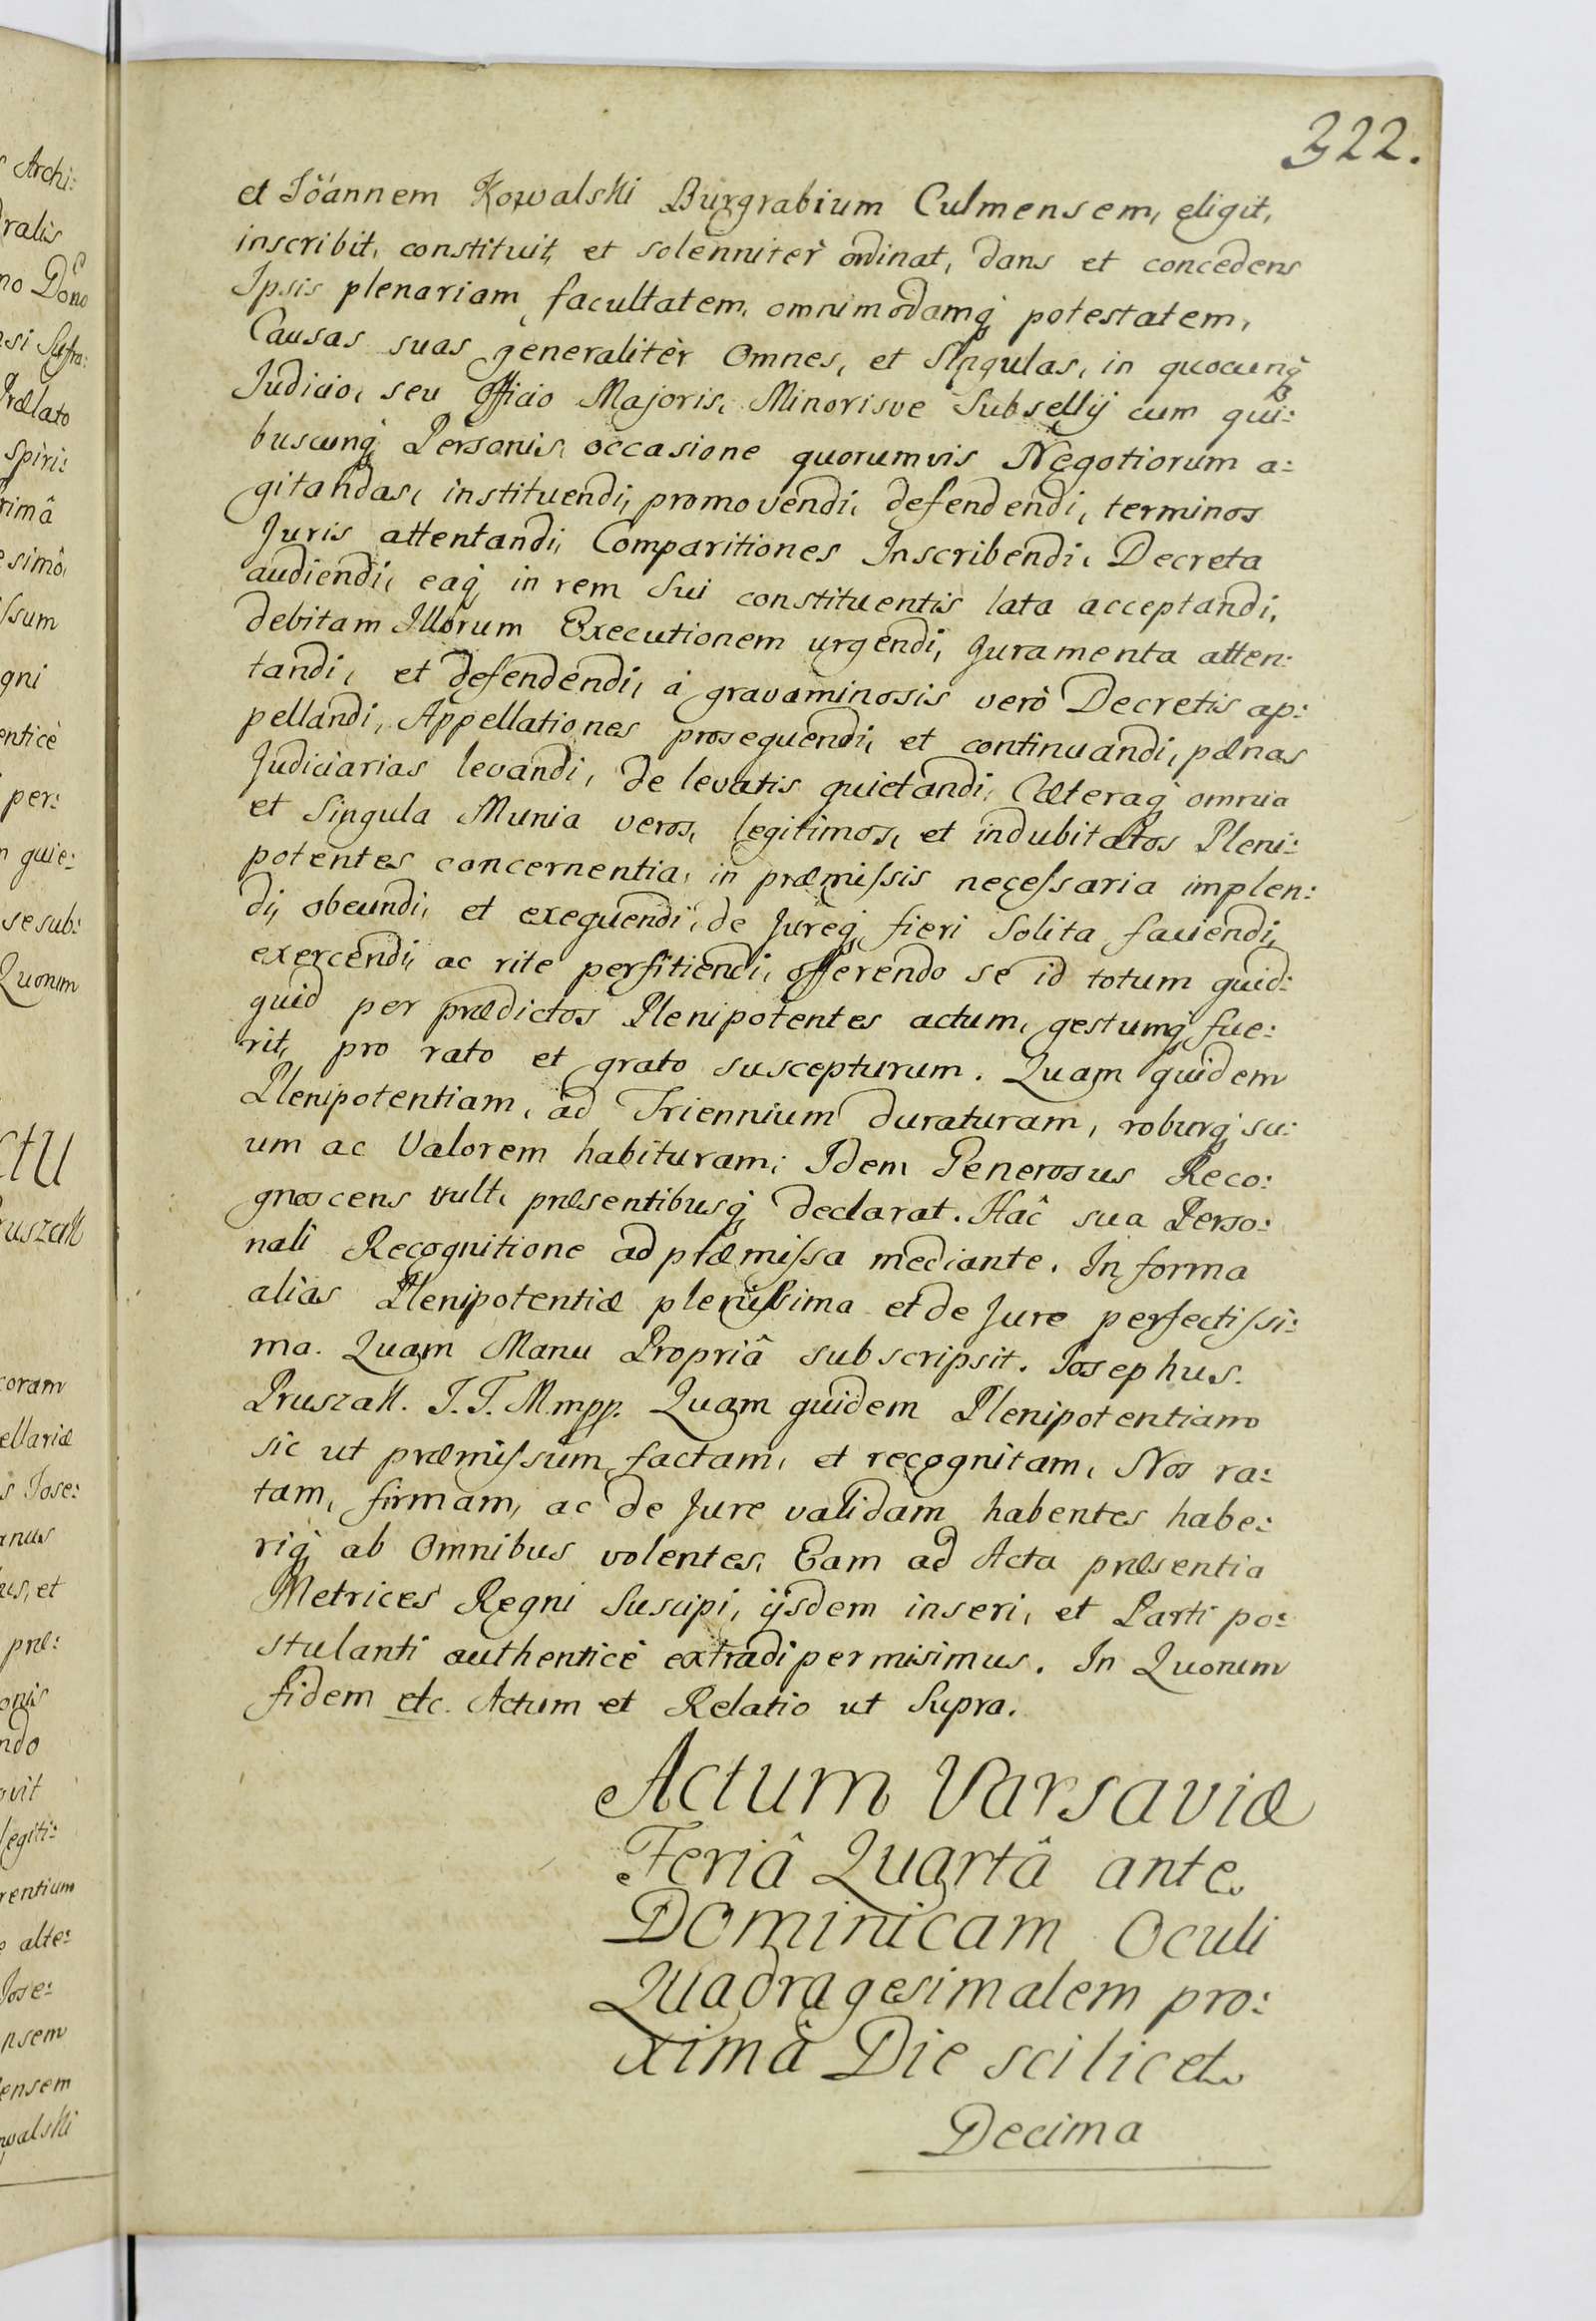 322.
et Jöannem Kowalski Burgrabium Culmensem, eligit,
inscribit, constituit, et solenniter ordinat, dans et concedens
Ipsis plenariam facultatem, omnimodamq; potestatem,
Causas suas generalitèr Omnes, et Singulas, in quocunq;
Judicio, seu Officio Majoris, Minorisve Subsellij cum qui:
buscunq; Personis, occasione quorumvis Negotiorum a:
gitandas, instituendi, promovendi, defendendi, terminos
Juris attentandi, Comparitiones Inscribendi, Decreta
audiendi, eaq; in rem Sui constituentis lata acceptandi,
debitam Illorum Executionem urgendi, Juramenta atten:
tandi, et defendendi, à gravaminosis verò Decretis ap:
pellandi, Appellationes prosequendi, et continuandi, pænas
Judiciarias levandi, de levatis quietandi, Cæteraq; omnia
et Singula Munia veros, legitimos, et indubitatos Pleni:
potentes concernentia, in præmissis necessaria implen:
di, obeundi, et exequendi, de Jureq; fieri Solita faciendi,
exercendi, ac rite perfitiendi, offerendo se id totum quid:
quid per prædictos Plenipotentes actum, gestumq; fue:
rit, pro rato et grato suscepturum. Quam quidem
Plenipotentiam, ad Triennium duraturam, roburq; su:
um ac Valorem habituram, Idem Generosus Reco:
gnoscens vult, præsentibusq; declarat. Hâc sua Perso:
nali Recognitione ad præmissa mediante. In forma
alias Plenipotentiæ plenissima et de Jure perfectissi:
ma. Quam Manu Propriâ subscripsit. Josephus.
Pruszak. T. T. M.mpp. Quam quidem Plenipotentiam
sic ut præmissum factam, et recognitam, Nos ra:
tam, firmam, ac de Jure validam habentes habe:
riq; ab Omnibus volentes, Eam ad Acta præsentia
Metrices Regni Suscipi, ijsdem inseri, et Parti po:
stulanti authenticè extradi permisimus. In Quorum
fidem etc. Actum et Relatio ut Supra.
Actum Varsaviæ
Feriâ Quartâ ante
Dominicam Oculi
Quadragesimalem pro:
ximâ Die scilicet
Decima